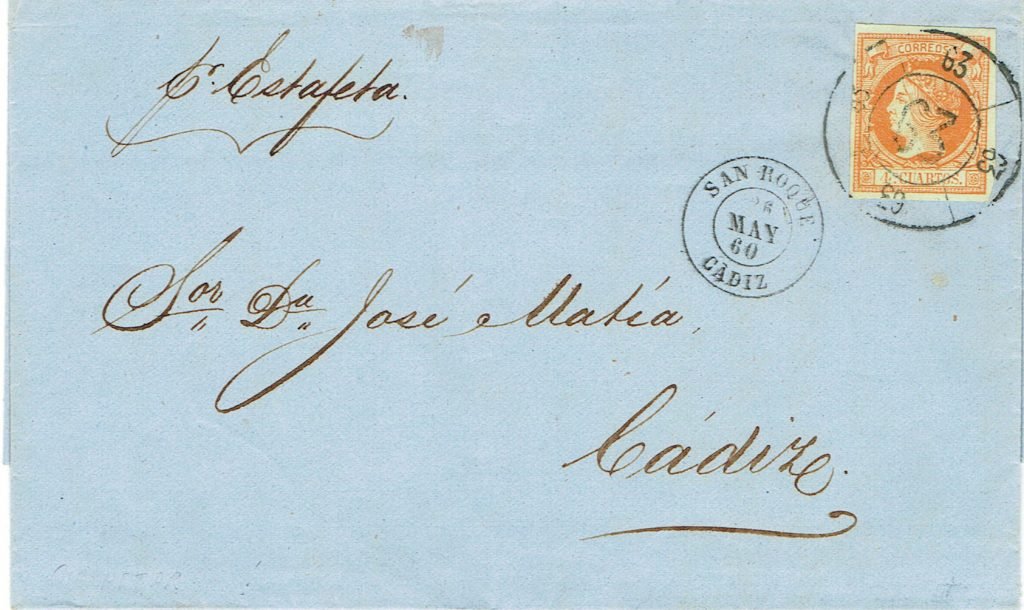 pr. Estafeta.
CORREOS
63
63
63
CUARTOS.
63
SAN ROQUE
26
MAY
60
CADIZ
Sor Dn José Matía,
Cádiz.